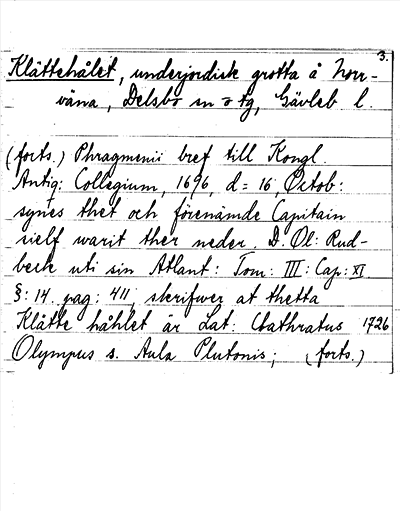 3.
Klåttehålet, underjordisk grotta å Norr-
våna, Delsbo sn o tg, Gävleb l.
(forts.) Phragmenii bref till Kongl.
Antiq: Collegium, 1696, d= 16, Octob:
synes thet och förenämde Capitain
sielf warit ther neder. D. Ol: Rud-
beck uti sin Atlant: Tom: III: Cap: XI.
§: 14. pag: 411, skrifwer at thetta
Klåtte håhlet är Lat: Clathratus 1726
Olympus s. Aula Plutonis; (forts.)